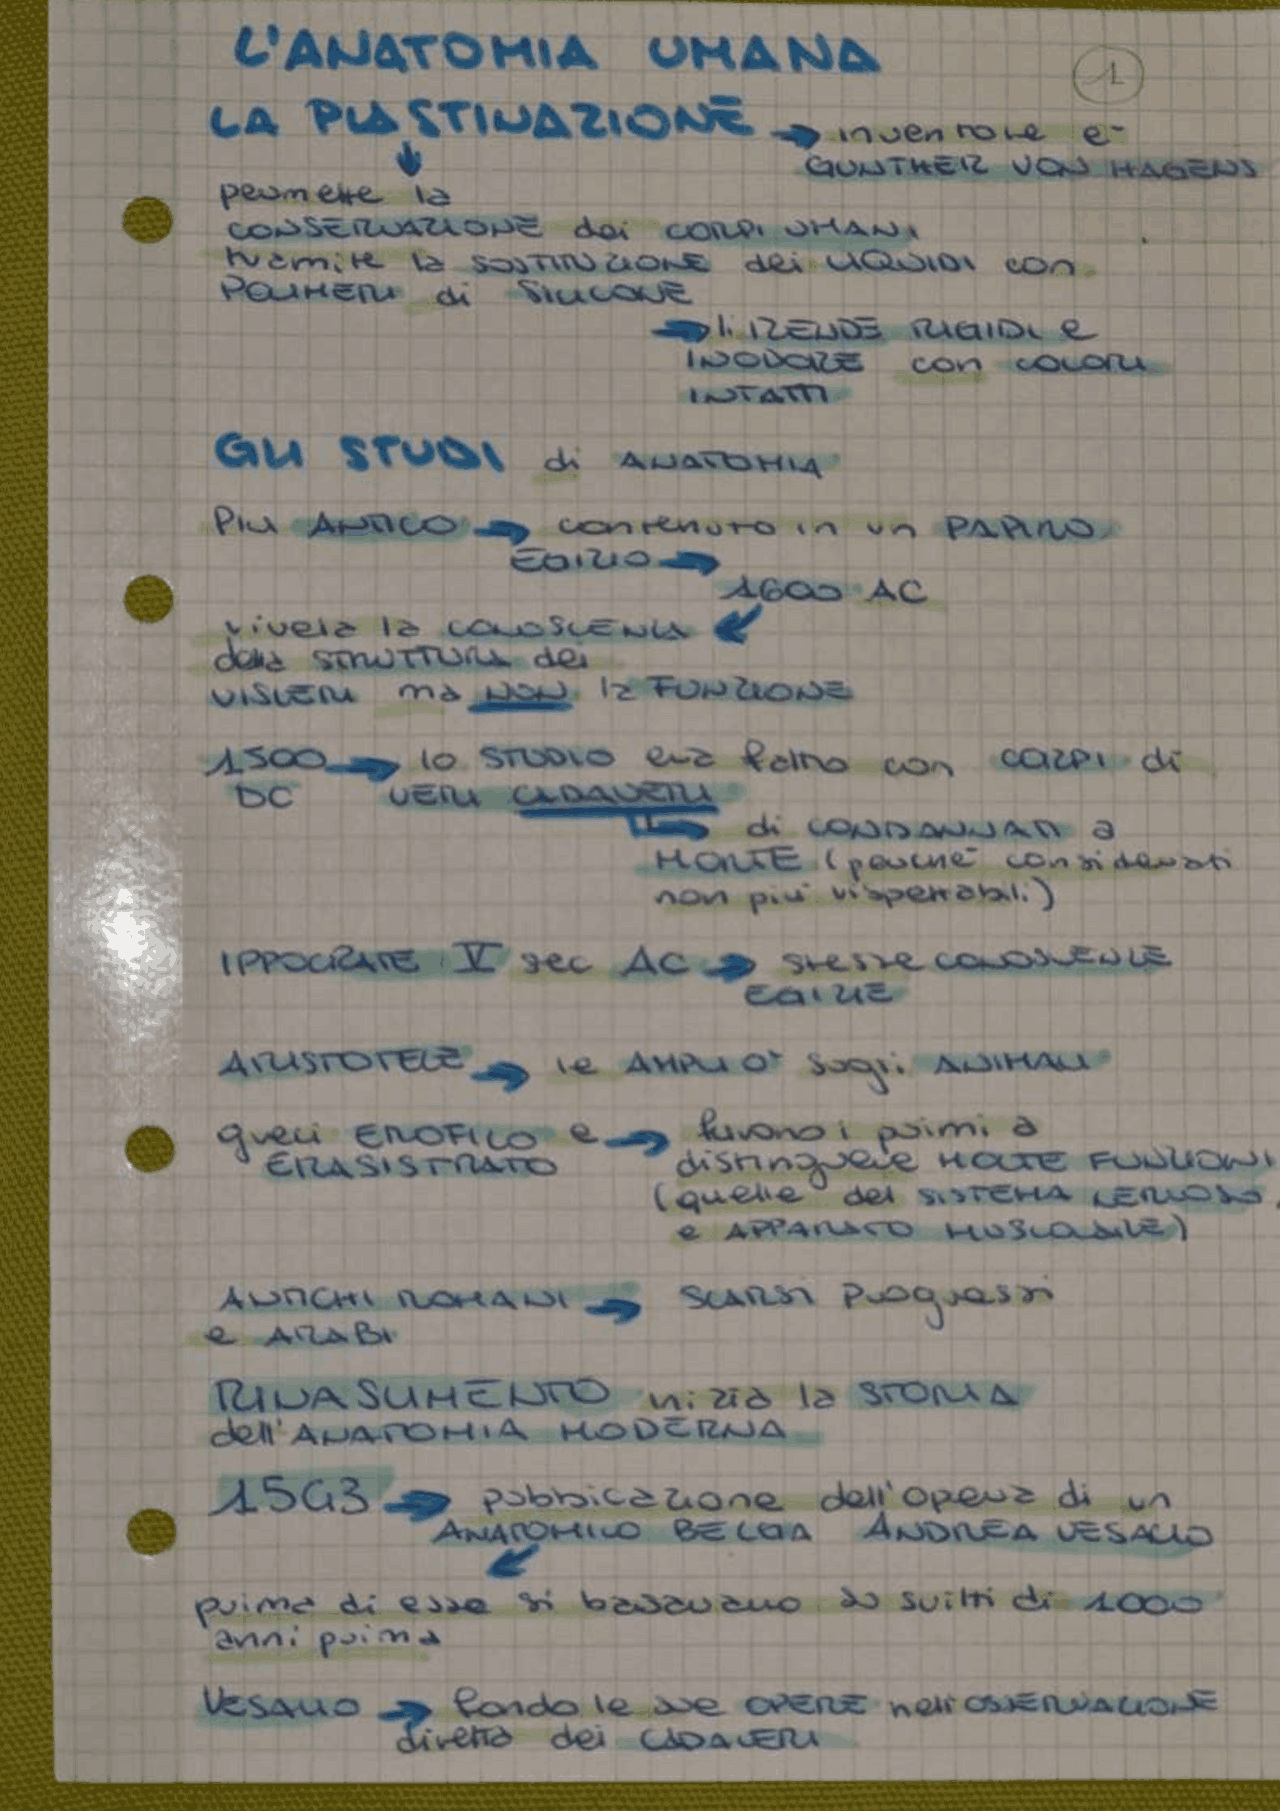 L'ANATOMIA UMANA
1
LA PLASTINAZIONE → inventore è
GUNTHER VON HAGENS
permette la
CONSERVAZIONE dei CORPI UMANI
tramite la SOSTITUZIONE dei LIQUIDI con
POLIMERI di SILICONE
→ li RENDE RIGIDI e
INODORE con COLORI
INTATTI
GLI STUDI di ANATOMIA
PIU ANTICO → contenuto in un PAPIRO
EGIZIO →
1600 AC
rivela la CONOSCENZA
della STRUTTURA dei
VISCERI ma NON la FUNZIONE
1500 → lo STUDIO era fatto con CORPI di
DC VERI CADAVERI
di CONDANNATI a
MORTE (perchè considerati
non più rispettabili)
IPPOCRATE V sec AC → stesse CONOSCENZE
EGIZIE
ARISTOTELE → le AMPLIO' sugli ANIMALI
greci EROFILO e → furono i primi a
ERASISTRATO distinguere MOLTE FUNZIONI
(quelle del SISTEMA NERVOSO
e APPARATO MUSCOLARE)
ANTICHI ROMANI → SCARSI progressi
e ARABI
RINASCIMENTO inizia la STORIA
dell'ANATOMIA MODERNA
1543 → pubblicazione dell'opera di un
ANATOMICO BELGA ANDREA VESALIO
prima di esse si basavano su scritti di 1000
anni prima
VESALIO → fondo le sue OPERE nell'OSSERVAZIONE
diretta dei CADAVERI